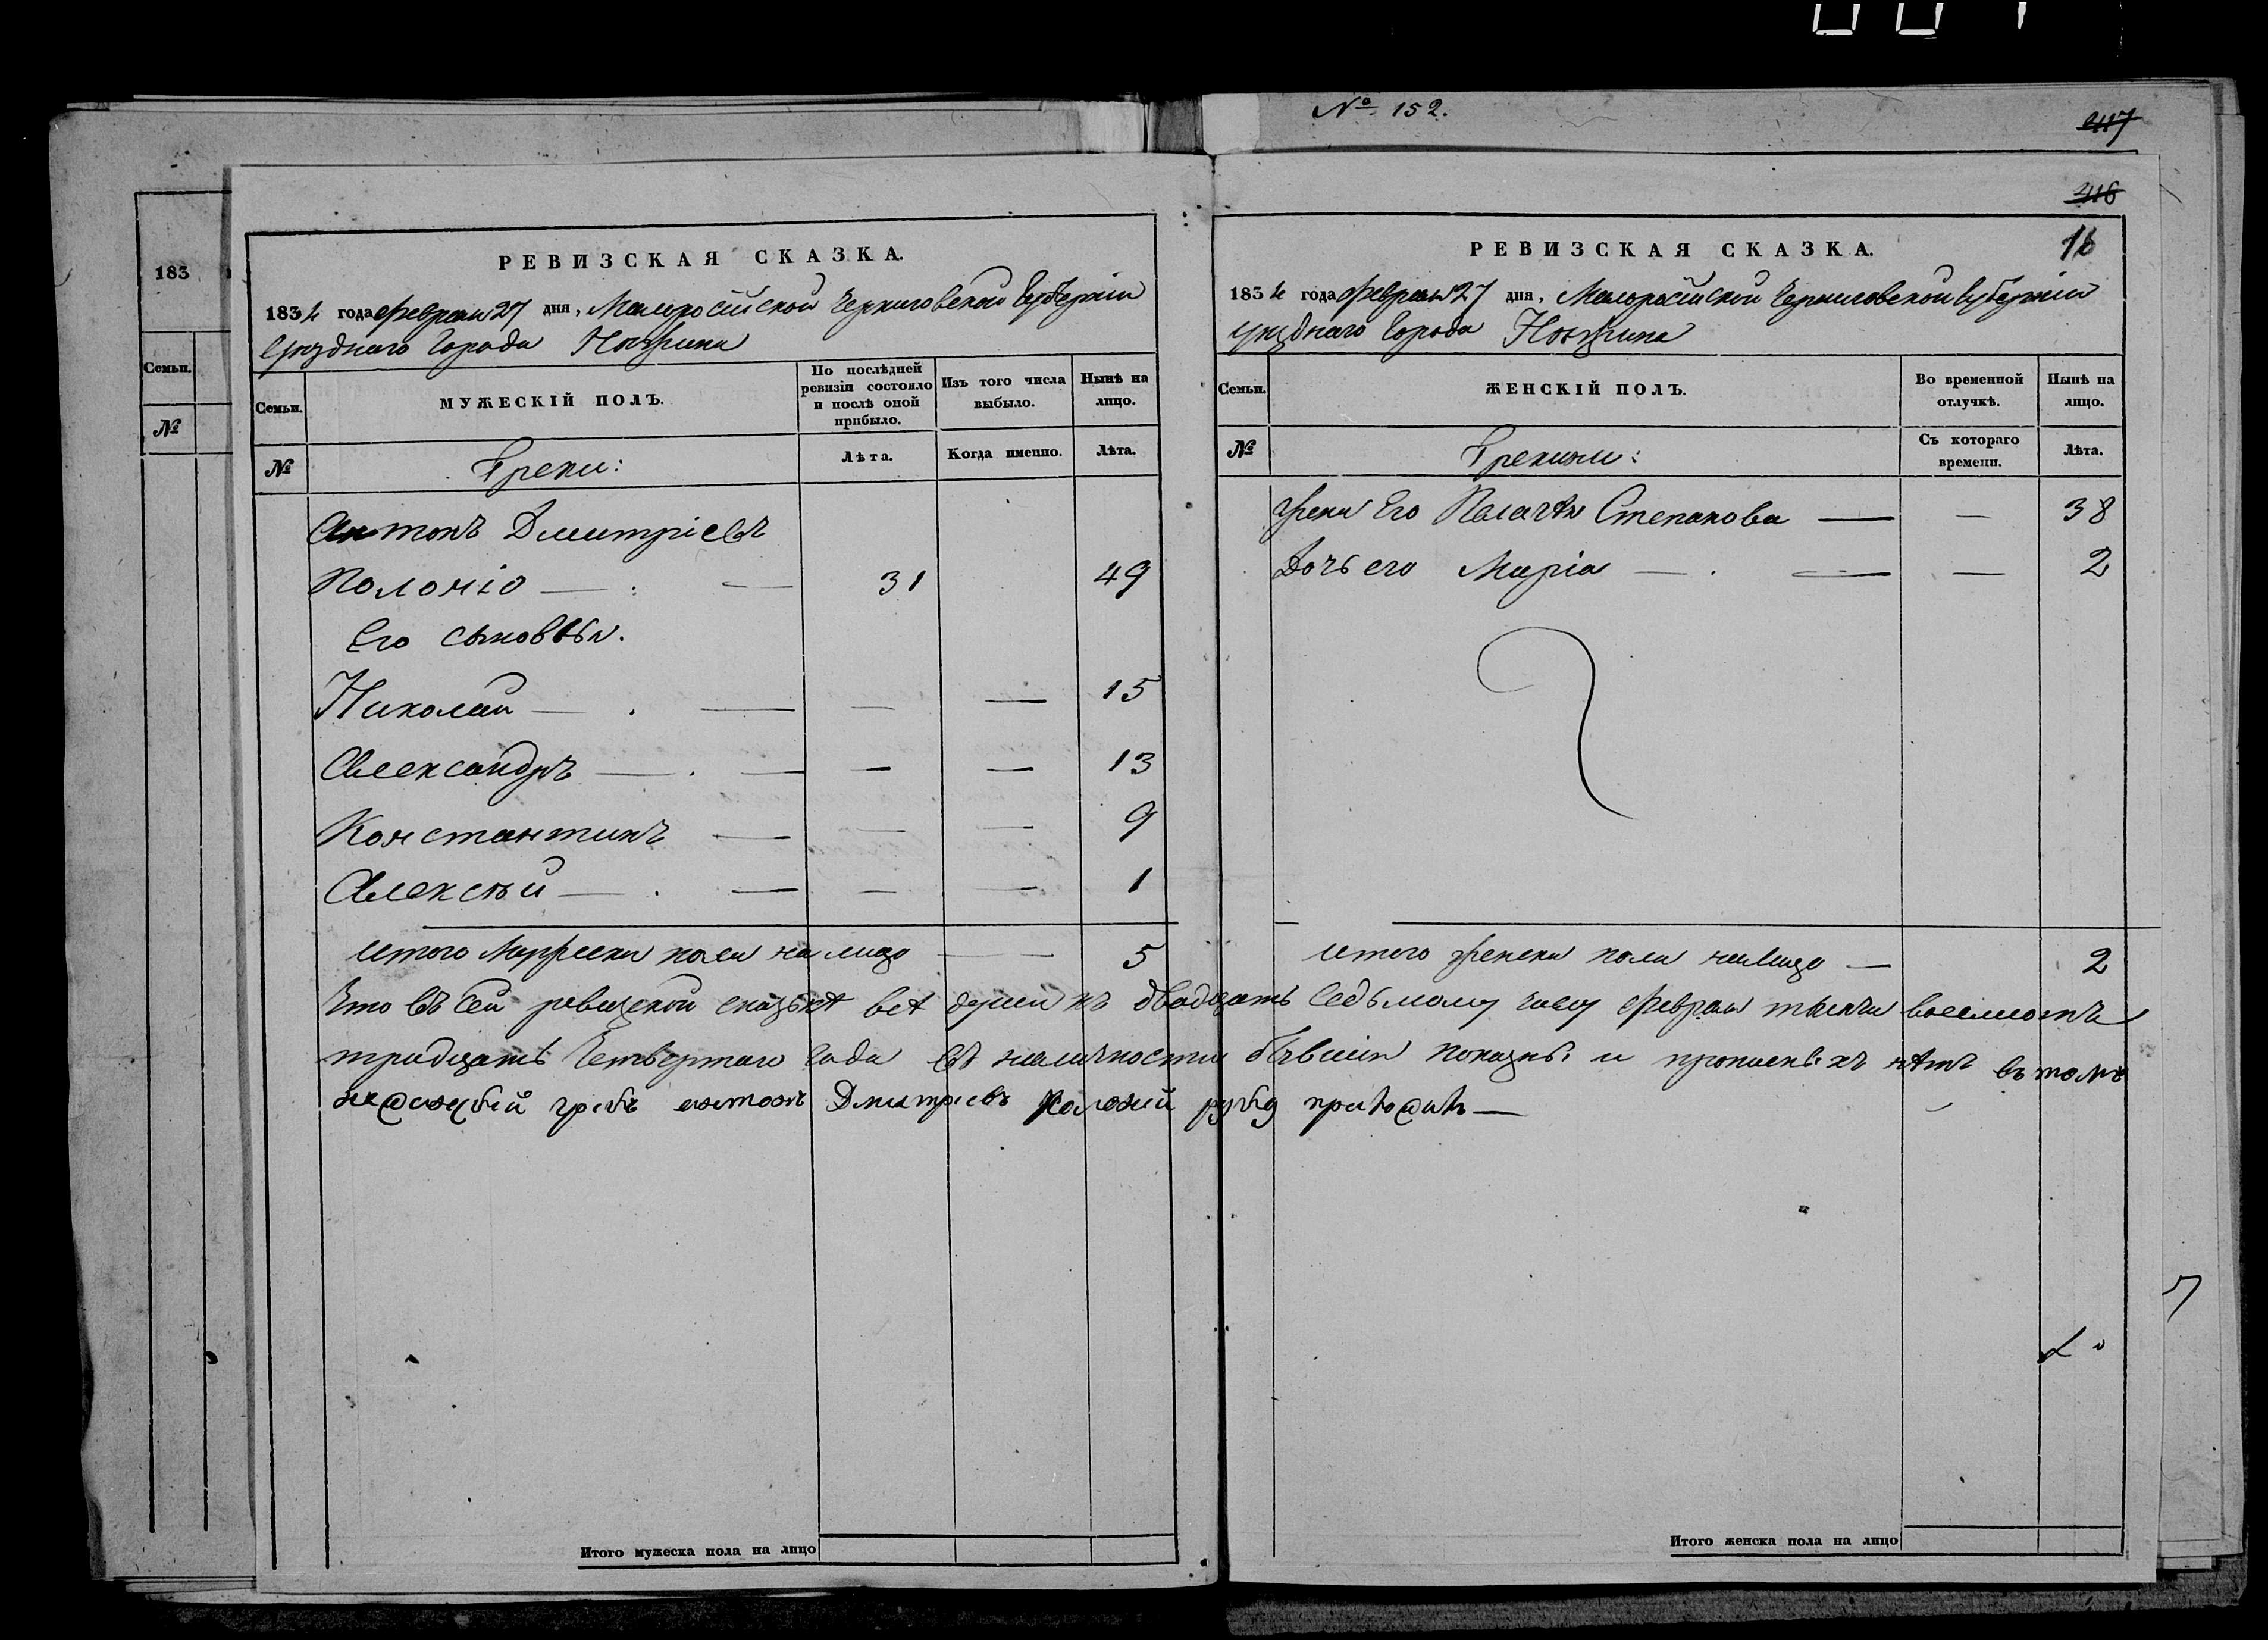 № 152.
417
416
16
183
Семьи.
№
РЕВИЗСКАЯ СКАЗКА.
1834 года февраля 27 дня, Малоросійской Черниговской Губерніи
Уезднаго Города Нѣжина
Семьи.
МУЖЕСКІЙ ПОЛЪ.
По послѣдней ревизіи состояло и послѣ оной прибыло.
Изъ того числа выбыло.
Нынѣ на лицо.
№
Греки:
Лѣта.
Когда именно.
Лѣта.
Антонъ Дмитріевъ
Полоніо — : — 31 49
Его сыновья.
Николай — . — — — 15
Александръ — . — — — 13
Константинъ — — — 9
Алексѣй — . — — — 1
Итого Мужеска пола на лицо — — 5
РЕВИЗСКАЯ СКАЗКА.
1834 года февраля 27 дня, Малоросійской Черниговской Губерніи
уезднаго Города Нѣжина
Семьи.
ЖЕНСКІЙ ПОЛЪ.
Во временной отлучкѣ.
Нынѣ на лицо.
№
Грекини:
Съ котораго времени.
Лѣта.
Жена Его Палагѣя Степанова — — 38
Дочь его Марія — . — — 2
Итого женска пола налицо — 2
Что въ сей ревизской сказкѣ всѣ души къ двадцать седьмому числу февраля тысяча восемсотъ
тридцать Четвертаго Года въ наличности бывшія показаны и прописныхъ нѣтъ въ томъ
грекъ антонъ Дмитриевъ Полоний руку
Итого мужеска пола на лицо
Итого женска пола на лицо
7